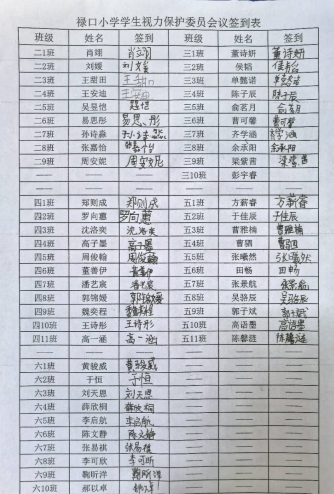 禄口小学学生视力保护委员会议签到表
班级 姓名 签到 班级 姓名 签到
二1班 肖翊 肖翊 三1班 董诗妍 董诗妍
二2班 刘媛 刘媛 三2班 侯韬 侯韬
二3班 王甜田 三3班 单懿诺
二4班 王安迪 三4班 陈子辰 陈子辰
二5班 吴昱怡 三5班 俞茗月 俞茗月
二6班 易思彤 易思彤 三6班 曹可馨 曹可馨
二7班 孙诗淼 孙诗淼 三7班 齐学涵
二8班 张嘉怡 张嘉怡 三8班 余承阳 余承阳
二9班 周安妮 周安妮 三9班 梁紫茜 梁紫茜
三10班 彭宇睿
四1班 郑则成 郑则成 五1班 方蕲睿 方蕲睿
四2班 罗向蕙 罗向蕙 五2班 于佳辰 于佳辰
四3班 沈洛奕 沈洛奕 五3班 曹雅楠 曹雅楠
四4班 高子墨 高子墨 五4班 曹驷 曹驷
四5班 周俊翰 周俊翰 五5班 张曦然 张曦然
四6班 董善伊 董善伊 五6班 田畅 田畅
四7班 潘艺宸 潘艺宸 五7班 张景航 张景航
四8班 郭锦媛 郭锦媛 五8班 吴骆辰 吴骆辰
四9班 魏奕程 魏奕程 五9班 郭子斌 郭子斌
四10班 王诗彤 王诗彤 五10班 高语墨 高语墨
四11班 高一涵 高一涵 五11班 陈馨涟 陈馨涟
六1班 黄骏威 黄骏威
六2班 于恒 于恒
六3班 刘天恩 刘天恩
六4班 薛欣桐 薛欣桐
六5班 李启航 李启航
六6班 陈文静 陈文静
六7班 张易祺 张易祺
六8班 李可欣 李可昕
六9班 鞠昕洋 鞠昕洋
六10班 那以卓